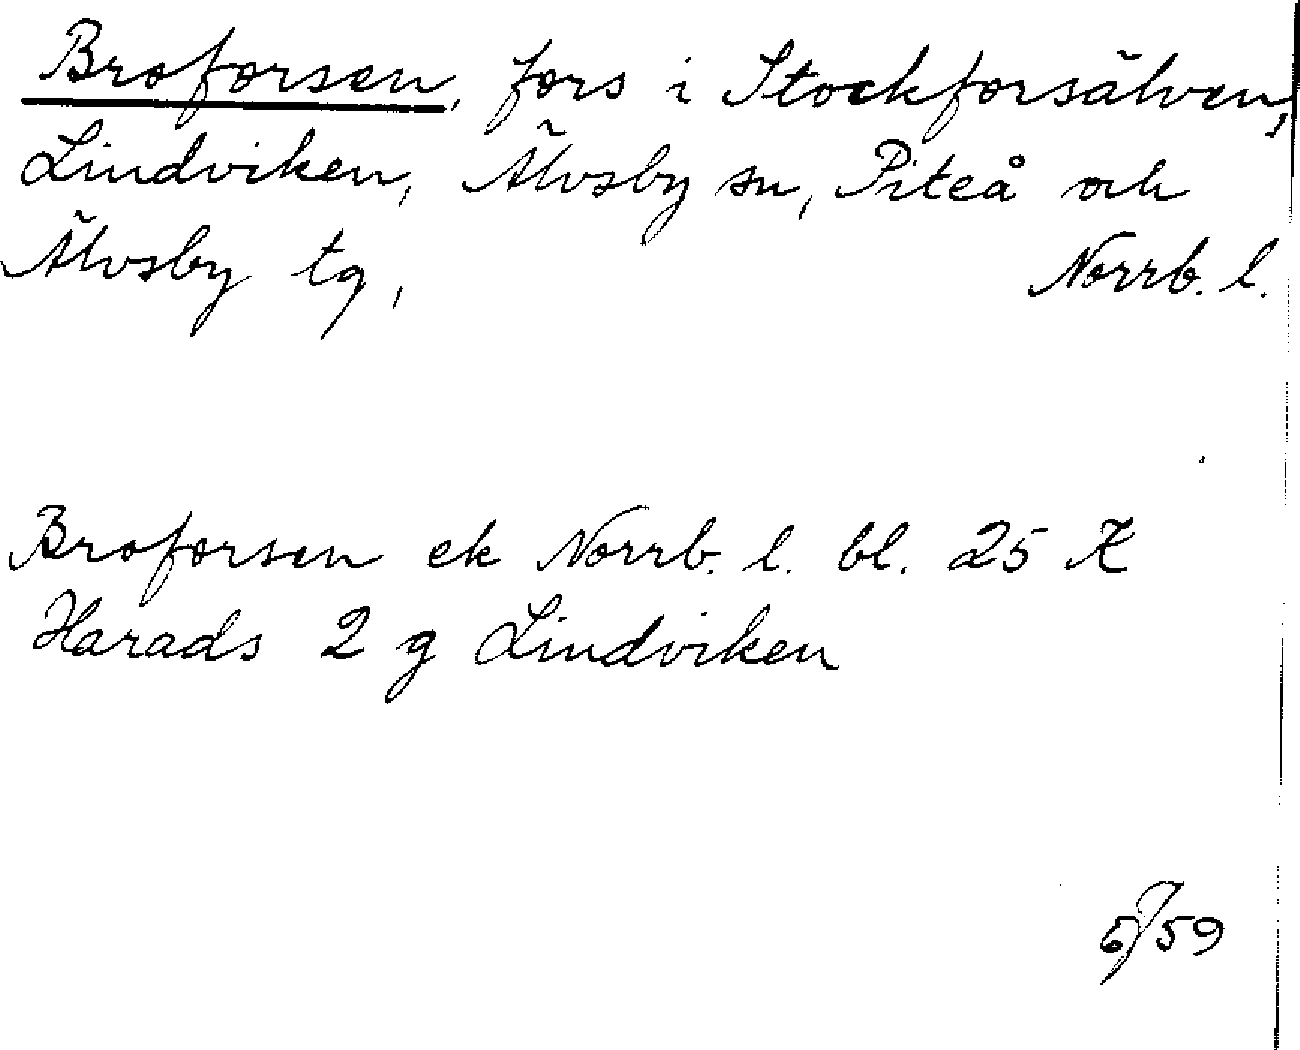 Broforsen, fors i Stockforsälven,
Lindviken, Älvsby sn, Piteå och
Älvsby tg, Norrb. l.
Broforsen ek Norrb. l. bl. 25 K
Harads 2 g Lindviken
5/59